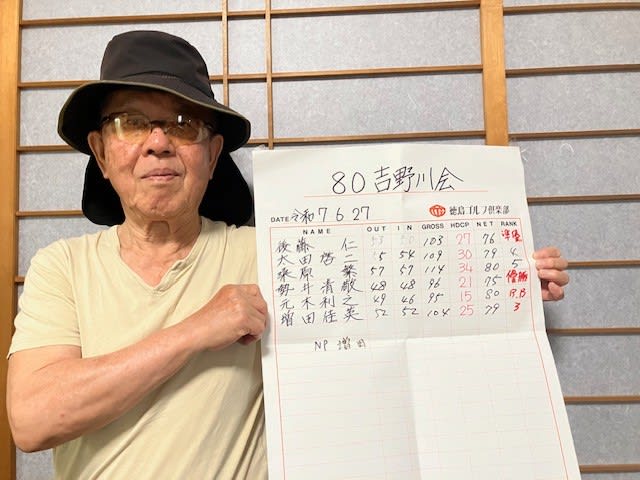 80 吉野川会
DATE 令和7 6 27 徳島ゴルフ倶楽部
NAME OUT IN GROSS HDCP NET RANK
後藤 仁 53 50 103 27 76 準優
大田啓二 54 109 30 79 4
桑原 繁 57 57 114 34 80 5
勢井清敬 48 48 96 21 75 優勝
元木利之 49 46 95 15 80 B.B
増田佳英 52 52 104 25 79 3
NP 増田